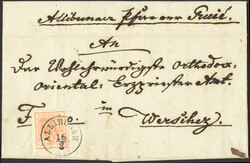 Allibunar Pfarrer
An
Der Wohlehrwürdigste Orthodox-
Oriental: Erzpriester Amt.
F o. in Werschez
ALLIBUNAR
16